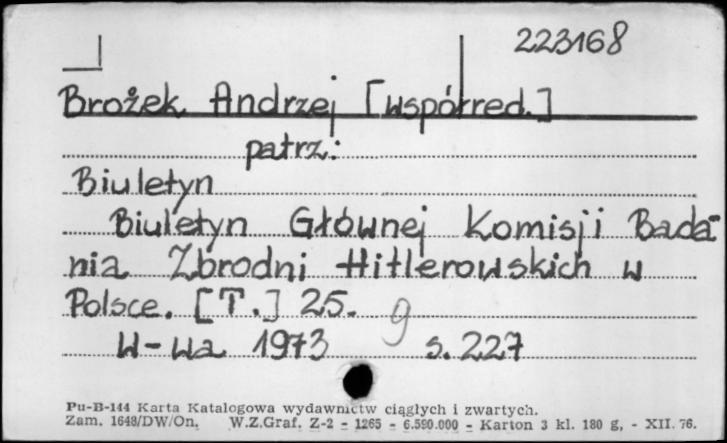 223168
Brożek Andrzej [współred.]
patrz:
Biuletyn
Biuletyn Głównej Komisji Bada-
nia Zbrodni Hitlerowskich w
Polsce. [T.] 25. g
W-wa 1973 s. 227
Pu-B-144 Karta Katalogowa wydawnictw ciągłych i zwartych.
Zam. 1648/DW/On. W.Z.Graf. Z-2 - 1265 - 6.590.000 - Karton 3 kl. 180 g, - XII. 76.